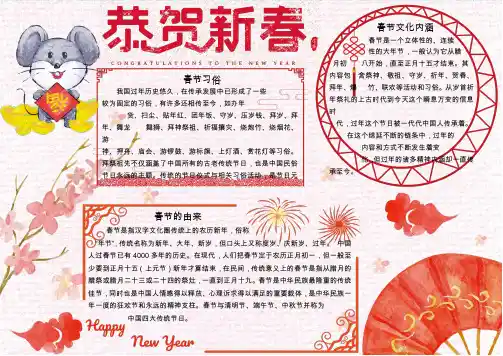 恭贺新春
CONGRATULATIONS TO THE NEW YEAR
春节习俗
我国过年历史悠久，在传承发展中已形成了一些
较为固定的习俗，有许多还相传至今，如办年
货、扫尘、贴年红、团年饭、守岁、压岁钱、拜岁、拜
年、舞龙 舞狮、拜神祭祖、祈福攘灾、烧炮竹、烧烟花、
游
神、押舟、庙会、游锣鼓、游标旗、上灯酒、赏花灯等习俗。
拜祭祖先不仅涵盖了中国所有的古老传统节日，也是中国民俗
节日永远的主题。传统的节日仪式与相关习俗活动，是节日元
春节文化内涵
春节是一个立体性的、连续
性的大年节，一般认为它从腊
月初 八开始，直至正月十五才结束。其
内容包 含祭神、敬祖、守岁、祈年、贺春、
拜年、爆 竹、联欢等活动和习俗。从岁首祈
年祭礼的上古时代到今天这个瞬息万变的信息
时
代，过年这个节日被一代代中国人传承着。
在这个绵延不断的链条中，过年的
内容和方式不断发生着变
化，但过年的诸多精神内涵却一直传
承至今。
春节的由来
春节是指汉字文化圈传统上的农历新年，俗称
“年节”，传统名称为新年、大年、新岁，但口头上又称度岁、庆新岁、过年。 中国
人过春节已有4000多年的历史。在现代，人们把春节定于农历正月初一，但一般至
少要到正月十五（上元节）新年才算结束，在民间，传统意义上的春节是指从腊月的
腊祭或腊月二十三或二十四的祭灶，一直到正月十九。春节是中华民族最隆重的传统
佳节，同时也是中国人情感得以释放、心理诉求得以满足的重要载体，是中华民族一
年一度的狂欢节和永远的精神支柱。春节与清明节、端午节、中秋节并称为
中国四大传统节日。
Happy
New Year